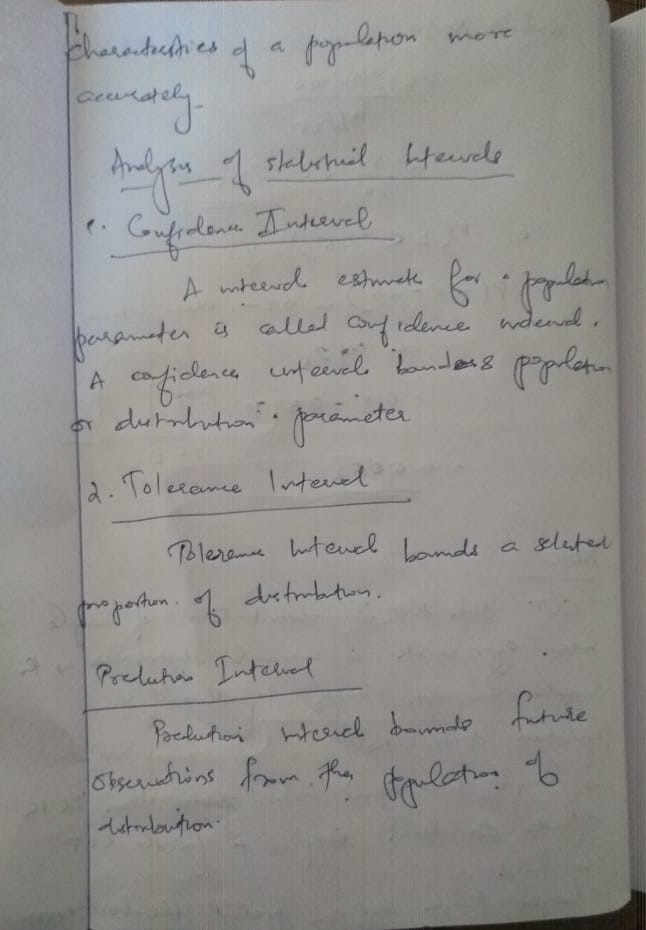 Characteristics of a population more
accurately.
Analysis of statistical Intervals
1. Confidence Interval
A interval estimate for a population
parameter is called confidence interval.
A confidence interval bounds population
or distribution parameter
2. Tolerance Interval
Tolerance Interval bounds a selected
proportion of distribution.
Prediction Interval
Prediction interval bounds future
observations from the population of
distribution.